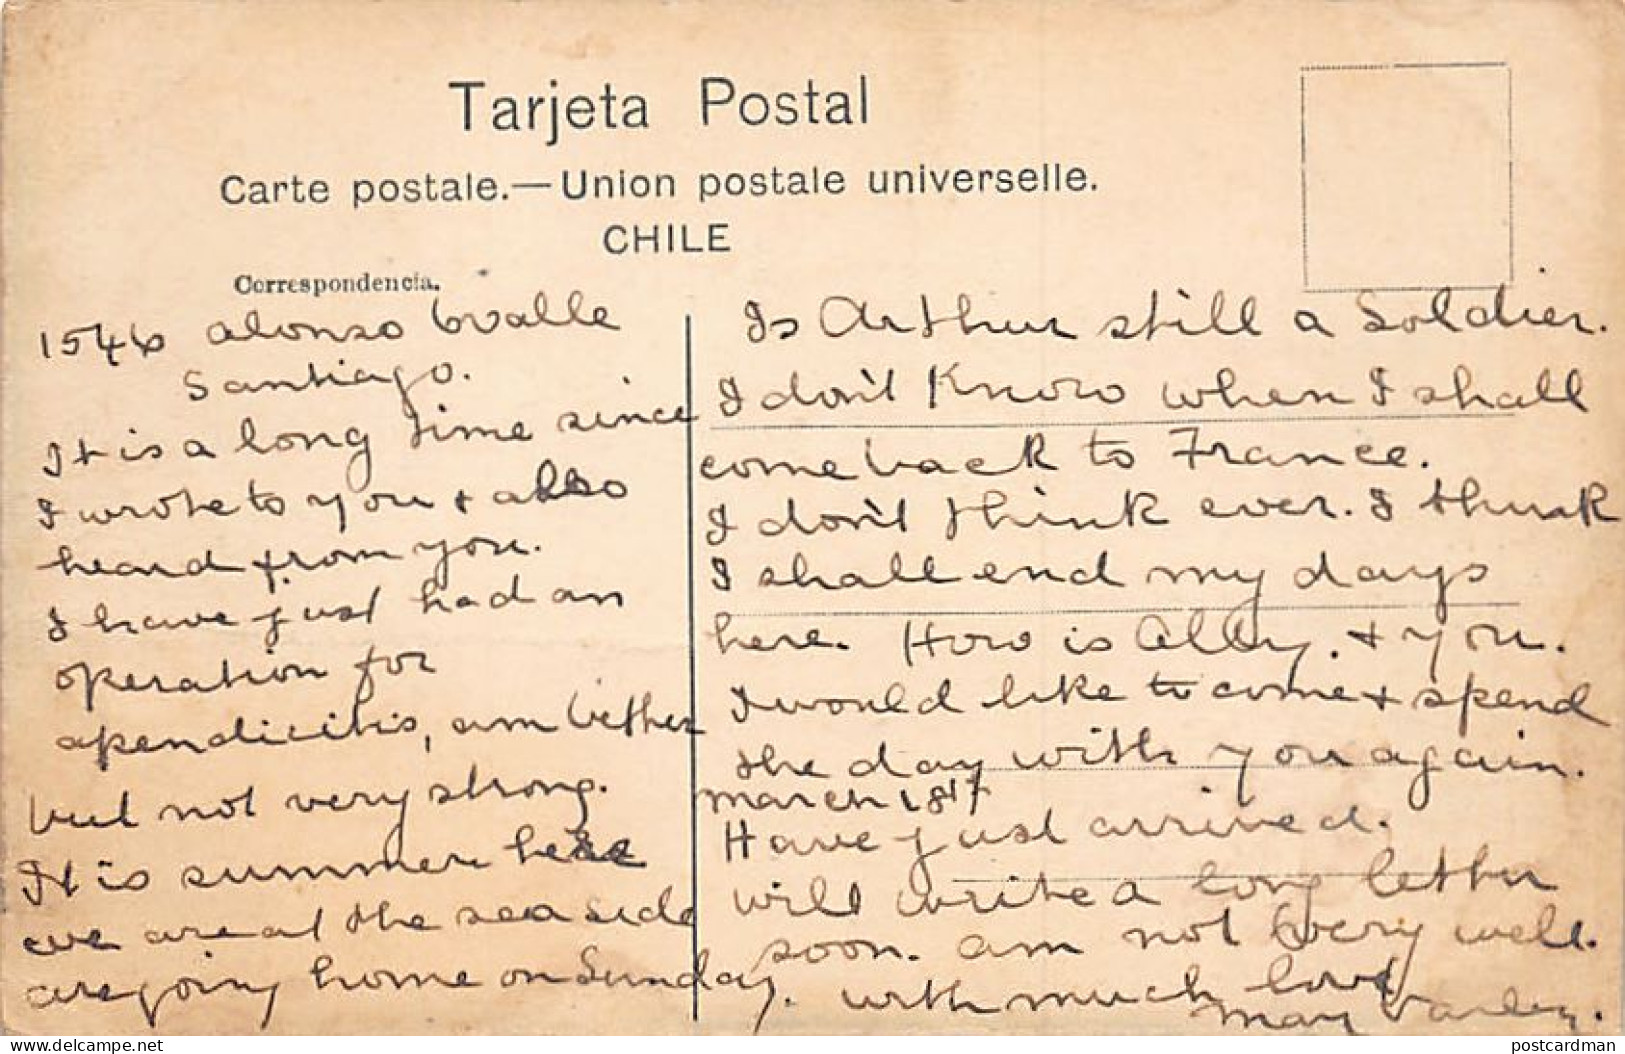 Tarjeta Postal
Carte postale.—Union postale universelle.
CHILE
Correspondencia.
1546 Alonso Ovalle
Santiago.
It is a long time since
I wrote to you + also
heard from you.
I have just had an
operation for
apendicitis, am better
but not very strong.
It is summer here
we are at the sea side
are going home on Sunday.
Is Arthur still a Soldier.
I don't know when I shall
come back to France.
I don't think ever. I think
I shall end my days
here. How is Ally. + you.
I would like to come + spend
the day with you again.
March 18 17
Have just arrived.
will write a long letter
soon. am not very well.
with much love
May Varley.
postcardman